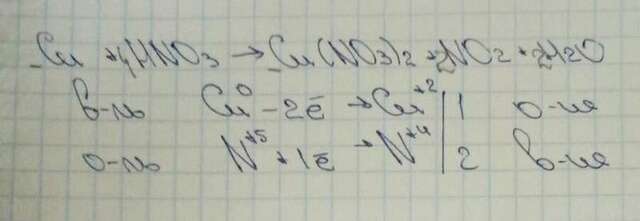 Cu + 4HNO3 → Cu(NO3)2 + 2NO2 + 2H2O
в-ль Cu⁰ - 2ē → Cu⁺² | 1 о-ия
о-ль N⁺⁵ + 1ē → N⁺⁴ | 2 в-ия